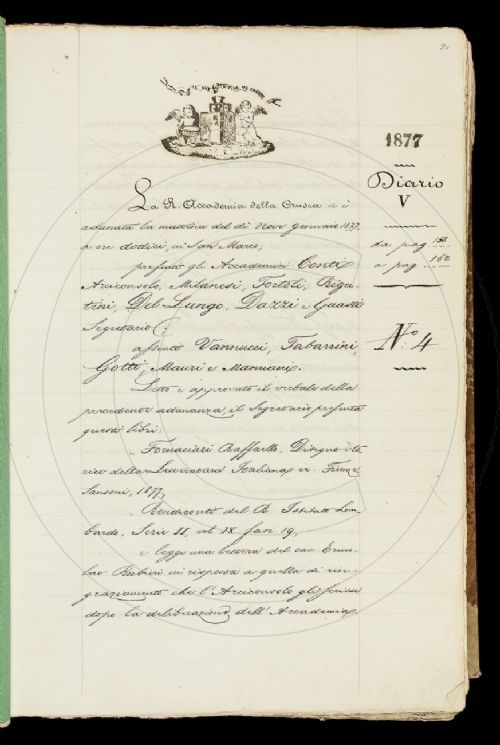 2.
1877
Diario
V
da pag. 151.
a pag. 162
N.º 4
La R. Accademia della Crusca si è
adunata la mattina del dì nove gennaio 1877.
a ore dodici, in San Marco,
presenti gli Accademici Conti
Arciconsolo, Milanesi, Tortoli, Riga-
tini, Del Lungo, Dazzi e Guasti
Segretario;
assenti Vannucci, Tabarrini,
Gotti, Mauri e Mamiani.
Letto e approvato il verbale della
precedente adunanza, il Segretario presenta
questi libri:
Fornaciari Raffaello, Disegno sto-
rico della Letteratura Italiana ec. Firenze,
Sansoni, 1877,
Rendiconti del R. Istituto Lom-
bardo, Serie II, vol. IX fasc. 19,
e legge una lettera del cav.
in risposta a quella di rin-
graziamento che l'Arciconsolo gli scrisse
dopo la deliberazione dell'Accademia